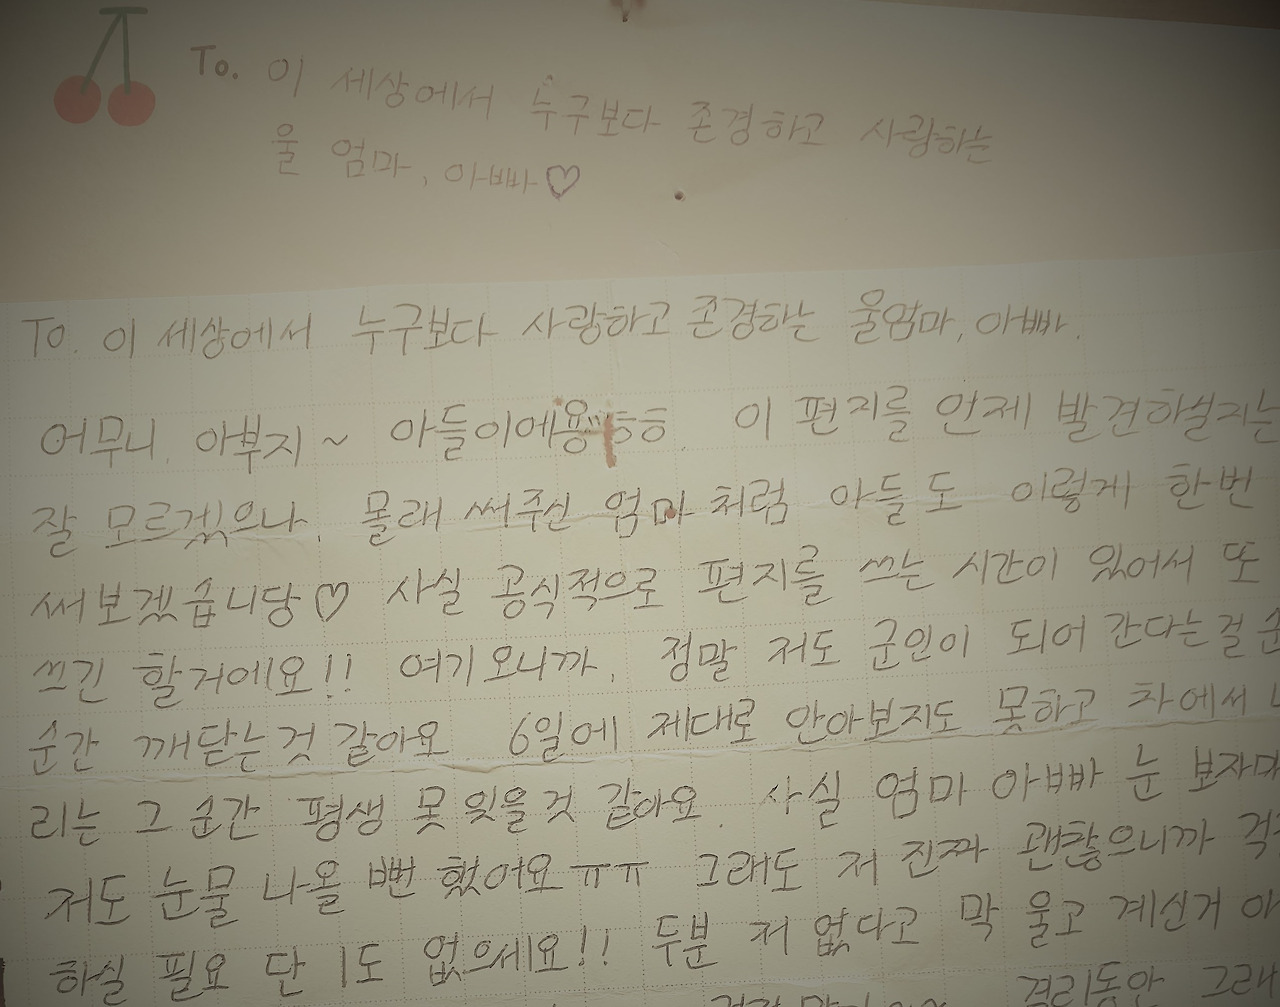 To. 이 세상에서 누구보다 존경하고 사랑하는
울 엄마, 아빠♡
To. 이 세상에서 누구보다 사랑하고 존경하는 울엄마, 아빠.
어무니, 아부지~ 아들이에용ㅎㅎ. 이 편지를 언제 발견하실지는
잘 모르겠으나, 몰래 써주신 엄마처럼 아들도 이렇게 한번
써보겠습니당♡ 사실 공식적으로 편지를 쓰는 시간이 있어서 또
쓰긴 할거에요!! 여기 오니까, 정말 저도 군인이 되어 간다는걸 순
순간 깨닫는것 같아요 6일에 제대로 안아보지도 못하고 차에서 내
리는 그 순간 평생 못 잊을것 같아요. 사실 엄마 아빠 눈 보자마
저도 눈물 나올 뻔 했어요ㅠㅠ 그래도 저 진짜 괜찮으니까 걱
하실 필요 단 1도 없으세요!! 두분 저 없다고 막 울고 계신거 아
그래